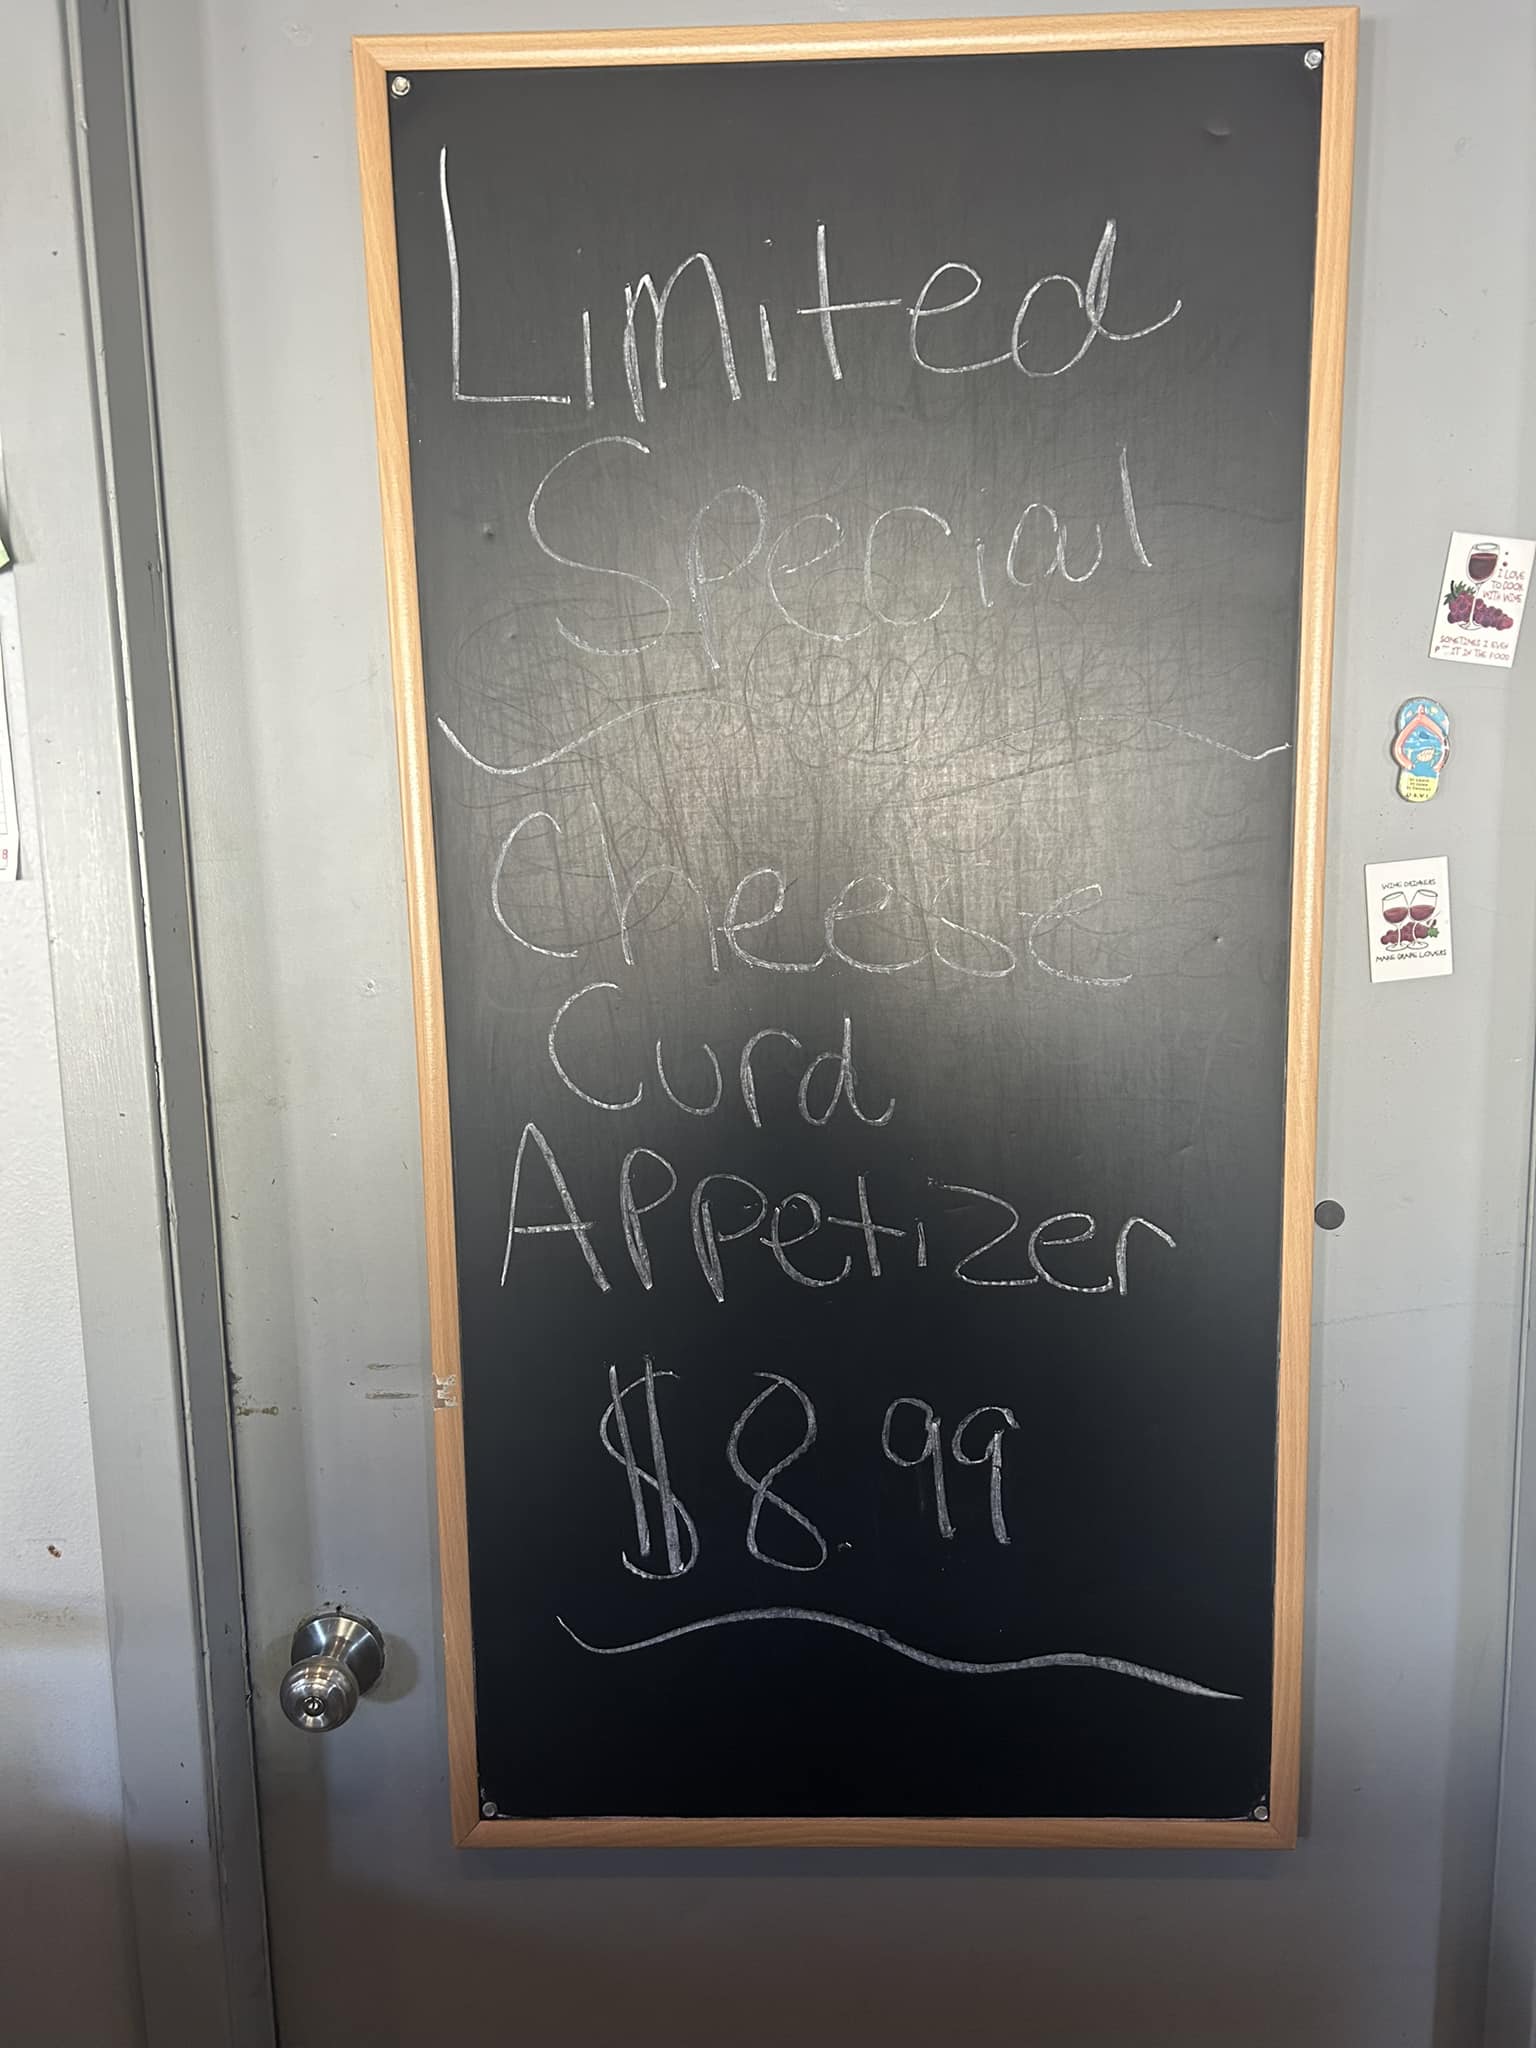 Limited
Special
Cheese
Curd
Appetizer
$8.99
I LOVE
TO COOK
WITH WINE
SOMETIMES I EVEN
P   IT IN THE FOOD
WINE DRINKERS
MAKE GRAPE LOVERS
8